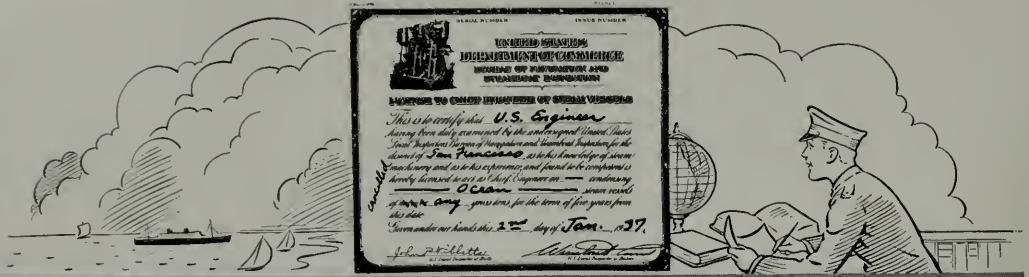 SERIAL NUMBER ISSUE NUMBER
UNITED STATES
DEPARTMENT OF COMMERCE
BUREAU OF NAVIGATION AND
STEAMBOAT INSPECTION
LICENSE TO CHIEF ENGINEER OF STEAM VESSELS
This is to certify that U.S. Engineer
having been duly examined by the undersigned United States
Local Inspectors Bureau of Navigation and Steamboat Inspection for the
district of San Francisco, as to his knowledge of steam
machinery and as to his experience, and found to be competent is
hereby licensed to act as Chief Engineer on condensing
Ocean steam vessels
of any gross tons for the term of five years from
this date
Given under our hands this 2nd day of Jan. 1937.
cancelled
John
U.S. Local Inspector of Boilers